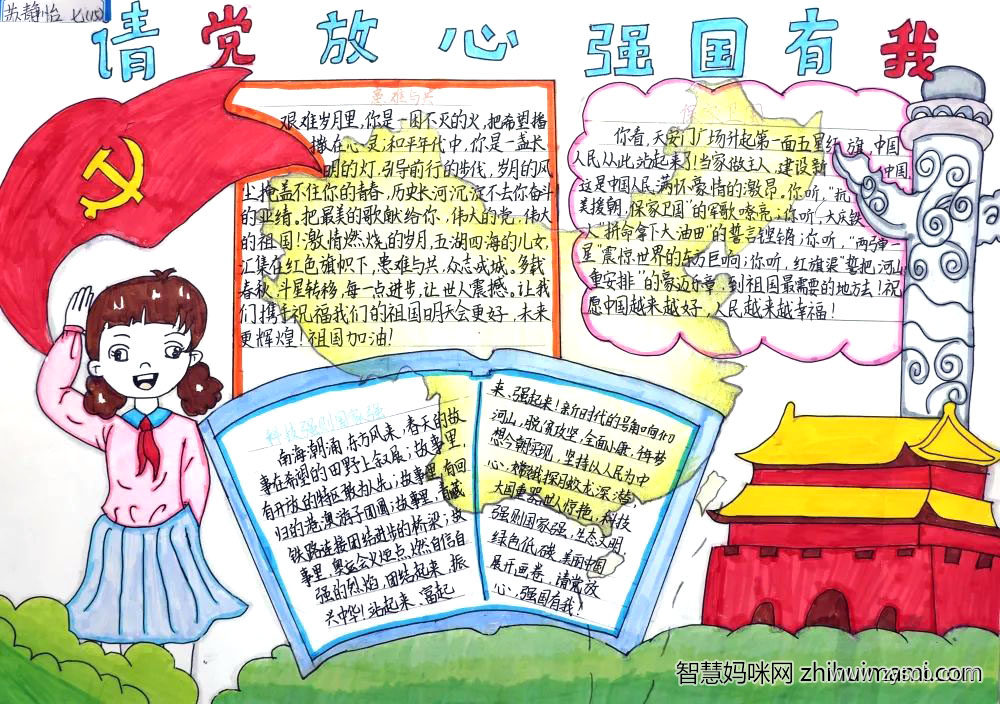 苏静怡 七(15)
请党放心 强国有我
患难与共
艰难岁月里,你是一团不灭的火,把希望播
撒在心灵;和平年代中,你是一盏长
明的灯,引导前行的步伐,岁月的风
尘掩盖不住你的青春,历史长河沉淀不去你奋斗
的业绩。把最美的歌献给你,伟大的党,伟大
的祖国!激情燃烧的岁月,五湖四海的儿女,
汇集在红色旗帜下,患难与共,众志成城。多载
春秋,斗星转移,每一点进步,让世人震撼。让我
们携手祝福我们的祖国明天会更好,未来
更辉煌!祖国加油!
你看,天安门广场升起第一面五星红旗,中国
人民从此站起来了!当家做主人,建设新中国,
这是中国人民满怀豪情的激昂。你听,"抗
美援朝,保家卫国"的军歌嘹亮;你听,大庆铁
人"拼命拿下大油田"的誓言铿锵;你听,"两弹一
星"震惊世界的东方巨响;你听,红旗渠"誓把河山
重安排"的豪迈乐章,到祖国最需要的地方去!祝
愿中国越来越好,人民越来越幸福!
科技强则国家强
南海潮涌,东方风来,春天的故
事在希望的田野上叙展;故事里,
有开放的特区敢为人先;故事里,有回
归的港,澳游子团圆;故事里,青藏
铁路连接团结进步的桥梁;故
事里,奥运会火炬点燃自信自
强的烈焰,团结起来,振
兴中华!站起来、富起
来、强起来!新时代的号角响们
河山,脱贫攻坚,全面小康,伟梦
想今朝实现,坚持以人民为中
心,嫦娥探月蛟龙深潜,
大国重器世人惊艳,科技
强则国家强,生态文明
绿色低碳,美丽中国
展开画卷,请党放
心,强国有我!
智慧妈咪网 zhihuimami.com